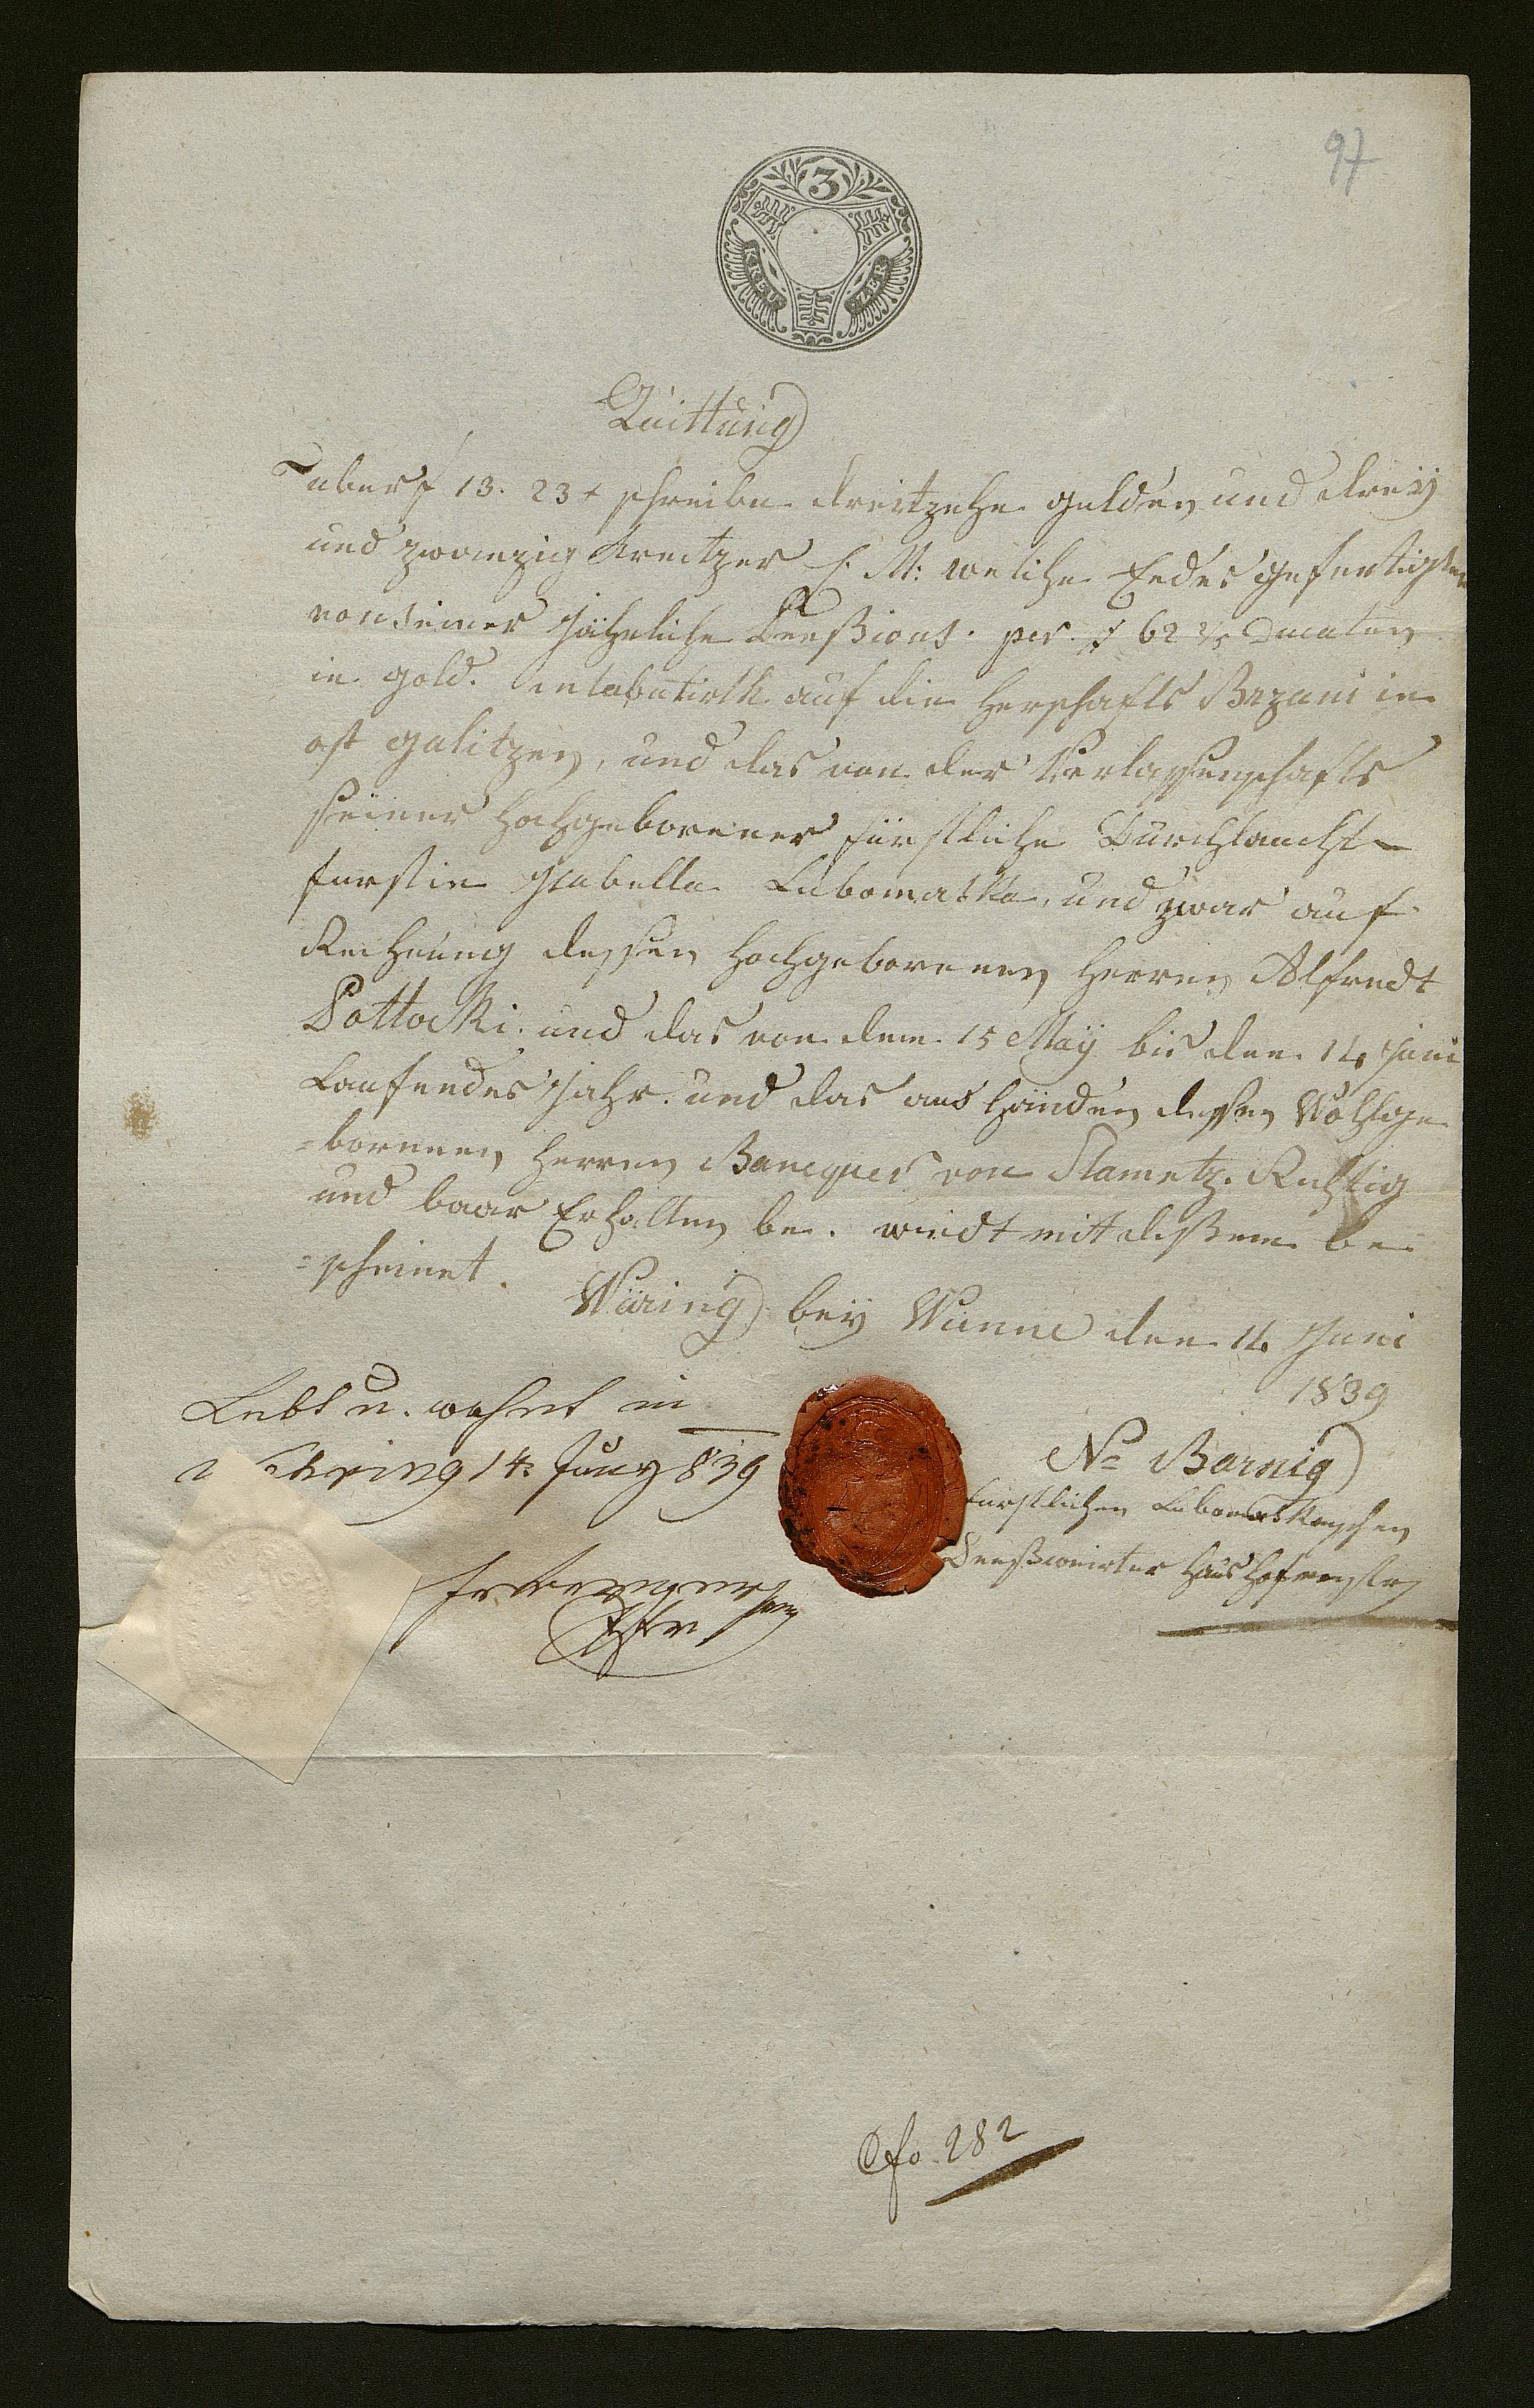 97
3
KREU ZER
Quittung
Uber f 13. 23 x schreibe dreitzehe gulden und dreÿ
und zwanzig Kreitzer C. M: welche Endes gefertigter
von seiner jährliche Penßions. per. # 62 2/5 Ducaten
in gold. intabulirth auf die Herschafts Brzani in
ost galitzen, und das von der Verlassenschafts
seiner Hochgeborener fürstliche Durchlaucht
furstin Isabella Lubomaska, und zwar auf
Rechnung dessen Hochgeborenen Herren Alfredt
Pottocki. und das von dem 15 Maÿ bis den 14 Juni
Laufendes Jahr. und das aus Händen dessen Wohlge
=bornnen Herren Banquer von Stametz. Richtig
und baar Erhalten be. wirdt mit dißem be
=scheinet.
Wäring beÿ Wienne den 14 Juni
1839
Lebt u. wohnt in
Währing 14: Juny 839
Nº Barnig
fürstlichen Lubomaskaschen
Penßionirter Haus Hofmeister
Pfr
fo. 282